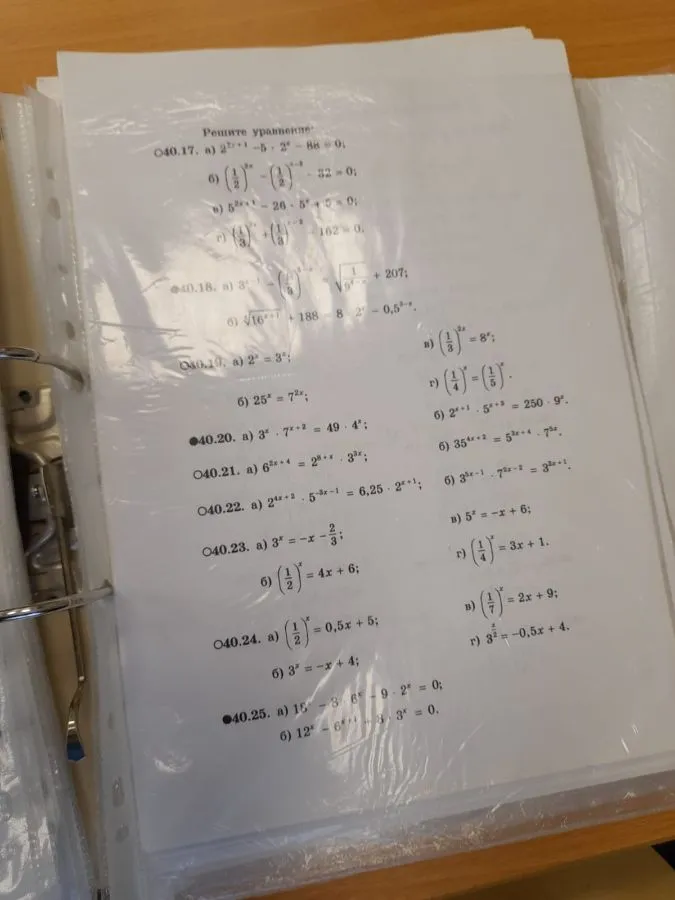 Решите уравнение:
○40.17. а) 2^{2x+1} - 5 · 2^x - 88 = 0;
б) (1/2)^{2x} - (1/2)^{x-2} - 32 = 0;
в) 5^{2x+1} - 26 · 5^x + 5 = 0;
г) (1/3)^{2x} + (1/3)^{x-2} - 162 = 0.
40.18. а) = √ + 207;
б) 16^{x+1} + 188 = 8 · 2^x - 0,5^{3-x}.
○40.19. а) 2^x = 3^x;
в) (1/3)^{2x} = 8^x;
б) 25^x = 7^{2x};
г) (1/4)^x = (1/5)^x.
●40.20. а) 3^x · 7^{x+2} = 49 · 4^x;
б) 2^{x+1} · 5^{x+3} = 250 · 9^x.
○40.21. а) 6^{2x+4} = 2^{8+x} · 3^{3x};
б) 35^{4x+2} = 5^{3x+4} · 7^{5x}.
○40.22. а) 2^{4x+2} · 5^{-3x-1} = 6,25 · 2^{x+1};
б) 3^{5x-1} · 7^{2x-2} = 3^{3x+1}.
○40.23. а) 3^x = -x - 2/3;
в) 5^x = -x + 6;
б) (1/2)^x = 4x + 6;
г) (1/4)^x = 3x + 1.
○40.24. а) (1/2)^x = 0,5x + 5;
в) (1/7)^x = 2x + 9;
б) 3^x = -x + 4;
г) 3^{x/2} = -0,5x + 4.
●40.25. а) 18^x - 8 · 6^x - 9 · 2^x = 0;
б) 12^x - 6^{x+1} + 8 · 3^x = 0.